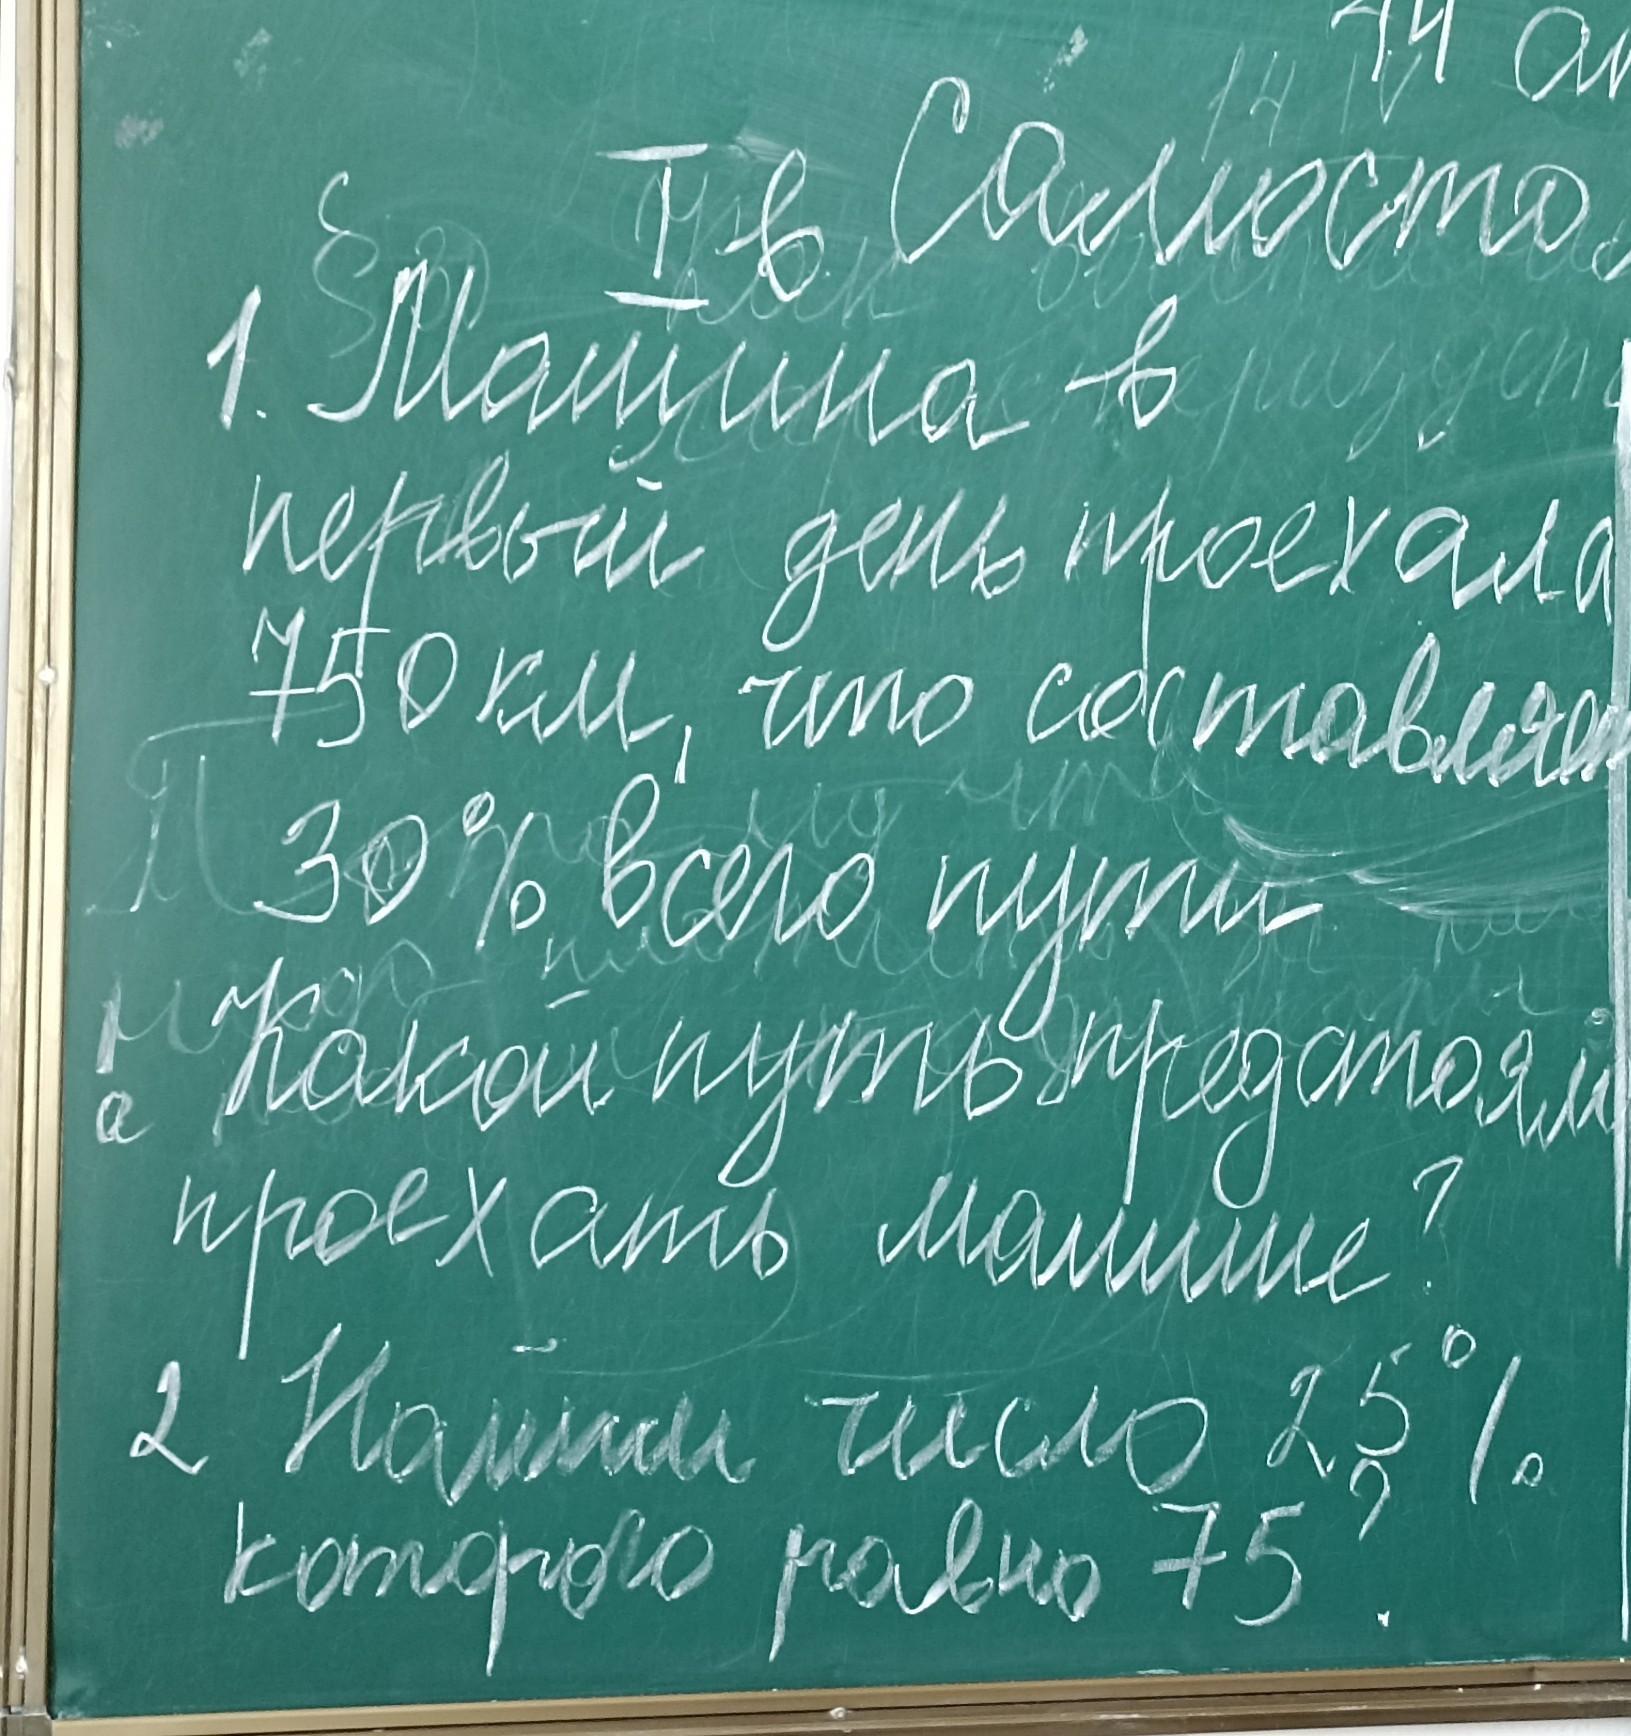 14
I в Самосто
1. Машина в
первый день проехала
750 км, что составляет
30% всего пути
Какой путь предстояли
проехать машине?
2 Найти число 25%
которого равно 75?